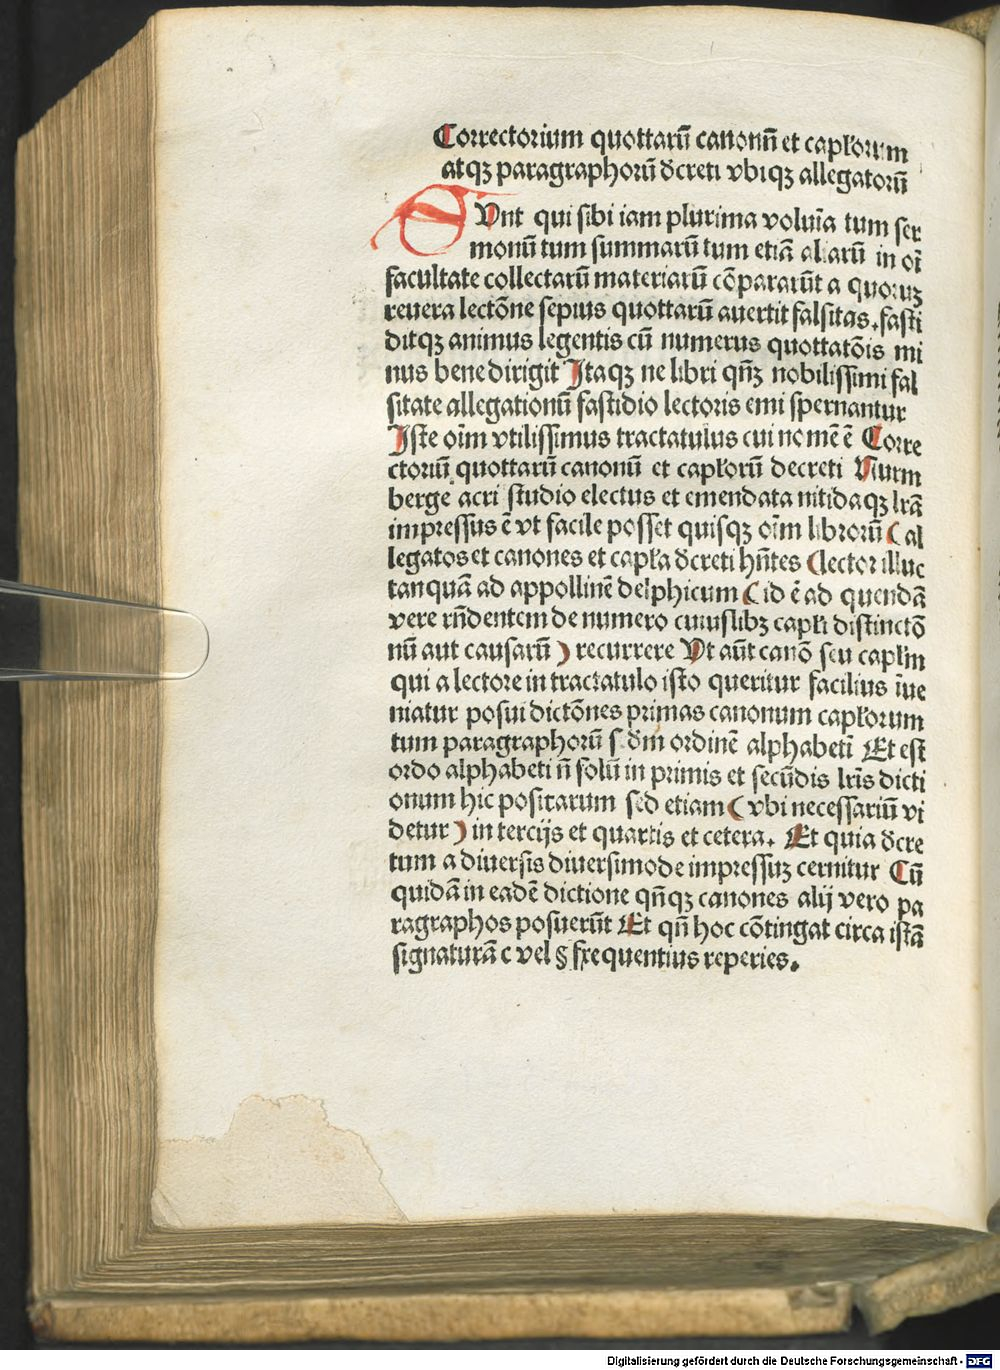 Correctorium quottarū canonū et caplorum
atqꝫ paragraphorū dcreti vbiqꝫ allegatorū
SVnt qui sibi iam plurima voluīa tum ser
monū tum summarū tum etiā aliarū in oī
facultate collectarū materiarū cōpararūt a quoruꝫ
reuera lectōne sepius quottarū auertit falsitas.fasti
ditqꝫ animus legentis cū numerus quottatōis mi
nus bene dirigit Itaqꝫ ne libri qn̄ꝫ nobilissimi fal
sitate allegationū fastidio lectoris emi spernantur
Iste oīm vtilissimus tractatulus cui nomē ē Corre
ctoriū quottarū canonū et caplorū decreti Nurm
berge acri studio electus et emendata nitidaqꝫ lrā
impressus ē vt facile posset quisqꝫ oīm librorū ( al
legatos et canones et capla dcreti hn̄tes (lector illuc
tanquā ad appollinē delphicum ( id ē ad quendā
vere rn̄dentem de numero cuiuslibꝫ capli distinctō
nū aut causarū ) recurrere Vt aūt canō seu caplm
qui a lectore in tractatulo isto queritur facilius īue
niatur posui dictōnes primas canonum caplorum
tum paragraphorū sdm ordinē alphabeti Et est
ordo alphabeti n̄ solū in primis et secūdis lris dicti
onum hic positarum sed etiam ( vbi necessariū vi
detur ) in tercijs et quartis et cetera. Et quia dcre
tum a diuersis diuersimode impressuꝫ cernitur Cū
quidā in eadē dictione qn̄qꝫ canones alij vero pa
ragraphos posuerūt Et qn̄ hoc cōtingat circa istā
signaturā c vel § frequentius reperies.
Digitalisierung gefördert durch die Deutsche Forschungsgemeinschaft - DFG